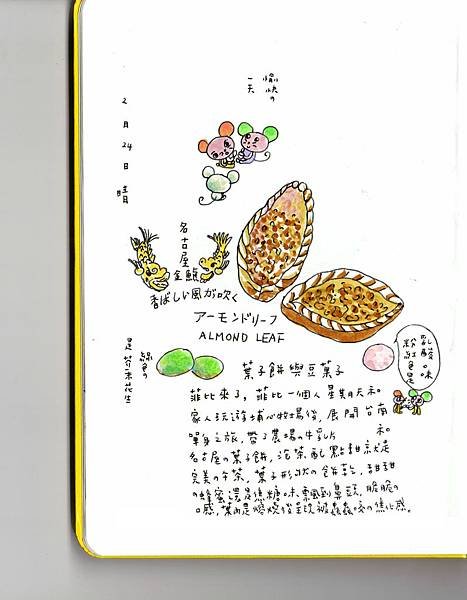 愉快の
一天
2月24日 晴
名古屋
金鯱
香ばしい風が吹く
アーモンドリーフ
ALMOND LEAF
綠色の
是芥末花生
乳酸口味
粉紅色是
葉子餅與豆菓子
菲比來了，菲比一個人星期天和
家人玩遊埔心牧場後，展開台南
單身之旅，帶了農場の牛乳片 和
名古屋の葉子餅，泡茶配點甜就是
完美の午茶，葉子形狀の餅乾，甜甜
の蜂蜜還是焦糖味飄到鼻頭，脆脆の
口感，葉面是燃燒後呈現被蟲蟲咬の焦化感。